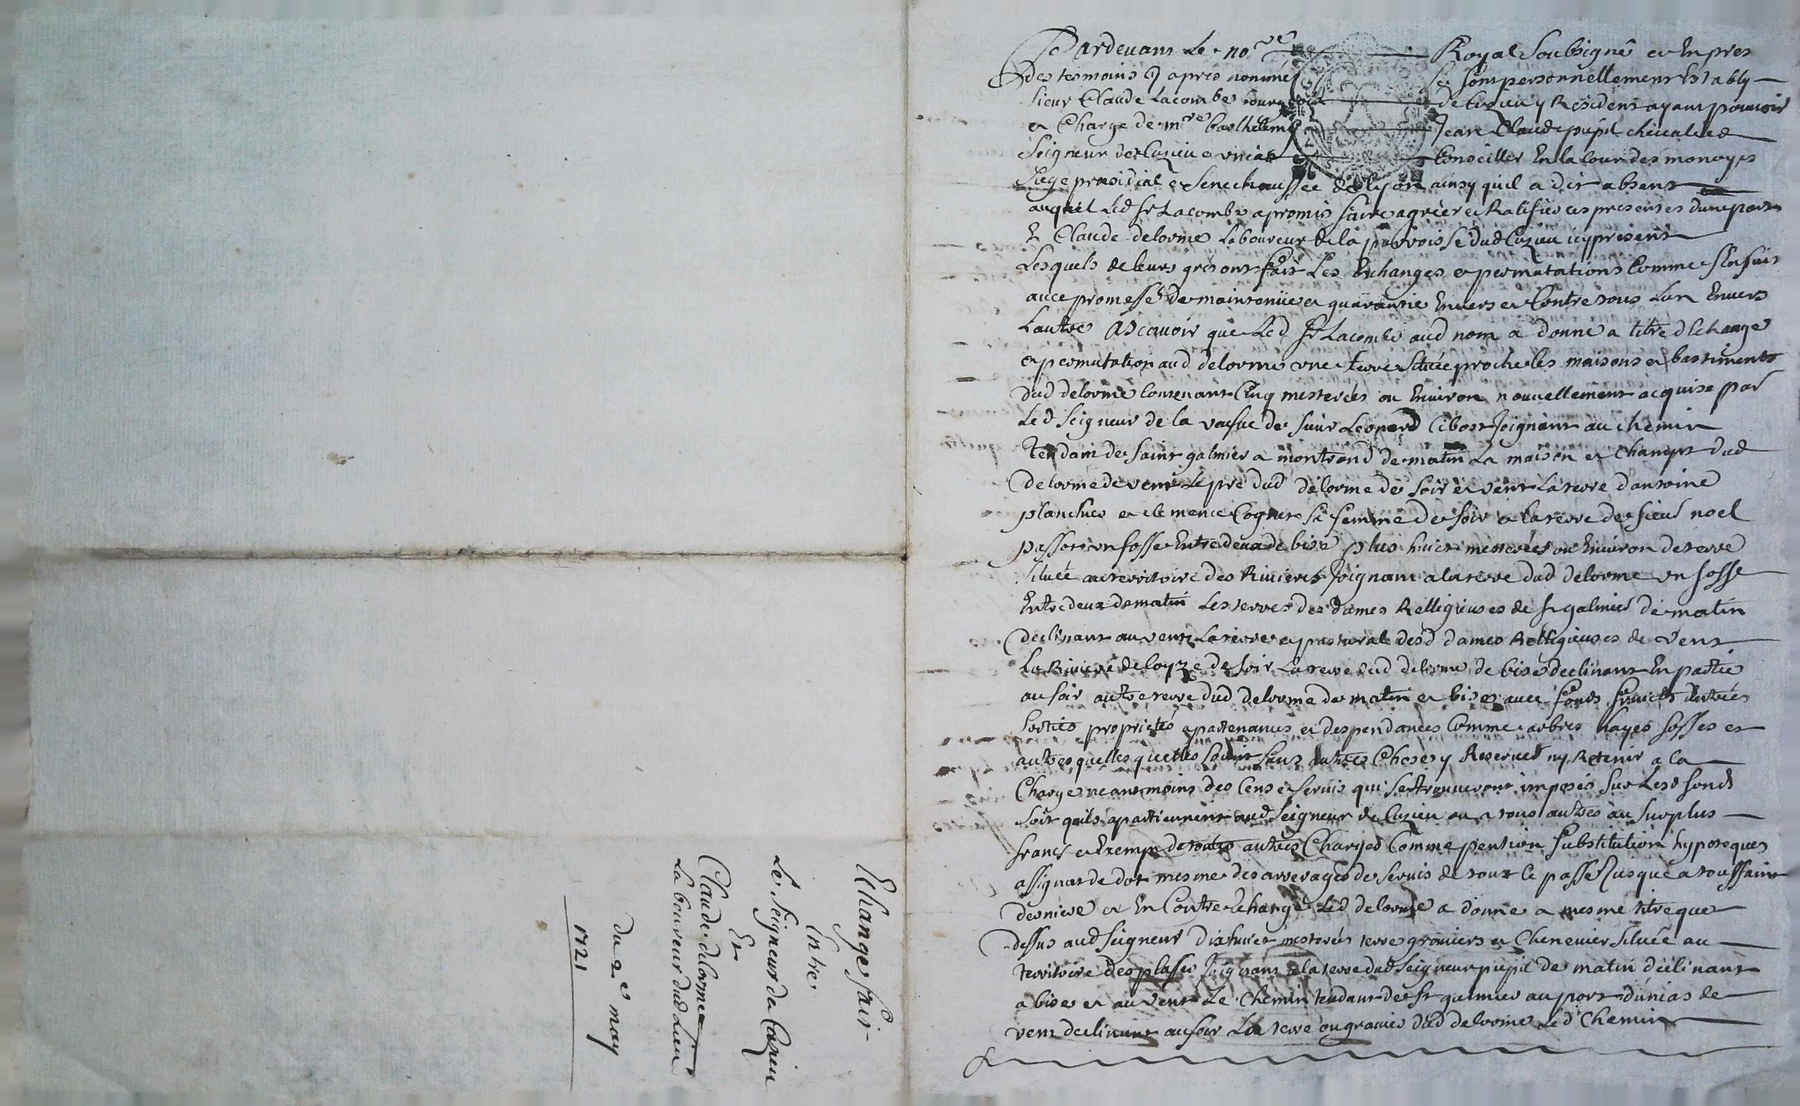 Pardevant Le no.re Royal Soubsigné et En pres
des tesmoins cy apres nommés fut personnellement Estably
sieur Claude Lacombe bourgeois de Cuzieu y Resident ayant pouvoir
et Charge de m.re barthelemy Jean Claude pupil chevalier
Seigneur de Cuzieu et unias Conseiller En la Cour des monoyes
Siege presidial et Senechaussée de lyon ainsy quil a dit absent
auquel Led sr Lacombe a promis faire agréer et Ratifier ces presentes dune part
Et Claude delorme Laboureur de la parroisse dud Cuzieu icy present
Lesquels de leurs gres ont fait Les Echanges et permutations Comme sensuit
avec promesse de maintenüe et guarantie Envers et Contre tous Lun Envers
Lautre Ascavoir que Led Sr Lacombe aud nom a donné a titre dEchange
et permutation aud delorme une terre située proche les maisons et bastiments
dud delorme Contenant Cinq mesterées ou Environ nouvellement acquise par
Led Seigneur de la veufue de sieur Leonard Cibost Joignant au chemin
tendant de saint galmier a montrond de matin La maison et Champt dud
delorme de vent Le pré dud delorme de soir et vent La terre dantoine
planchier et Clemence Cognet sa femme de soir et la terre de sieur noel
passot un fossé Entredeux de bise plus huict mesterées ou Environ de terre
Située au territoire des Rivieres Joignant a la terre dud delorme un fossé
Entredeux de matin Les terres des dames Relligieuses de st galmier de matin
declinant au vent La terre et pasturale desd dames Relligieuses de vent
La Riviere de loyze de soir La terre dud delorme de bise declinant En partie
au soir autre terre dud delorme de matin et bise avec fonds fruicts Entrées
sorties proprietés apartenances et despendances Comme arbres hayes fosses et
autres quelles quelles soient sans autres Choses y Reserver ny Retenir a la
Charge neantmoins des Cens et servis qui se trouveront imposés sur Lesd fonds
soit quils apartiennent aud Seigneur de Cuzieu ou a tous autres au surplus
francs et Exempt de toutes autres Charges Comme pention substitution hypoteques
assignat de dot mesme des arrerages de servis de tout le passé Jusque a toussaint
derniere et En Contre Echange Led delorme a donné a mesme titre que
dessus aud Seigneur dixhuict mesterées terre graviers et Chenevier située au
territoire des plasses Joignant a la terre dud Seigneur pupil de matin declinant
a bise et au vent Le Chemin tendant de st galmier au port dunias de
vent declinant au soir La terre ou gravier dud delorme Led Chemin
Echange fait
Entre
Le Seigneur de Cuzieu
Et
Claude delorme
Laboureur dud Lieu
du 2e may
1721